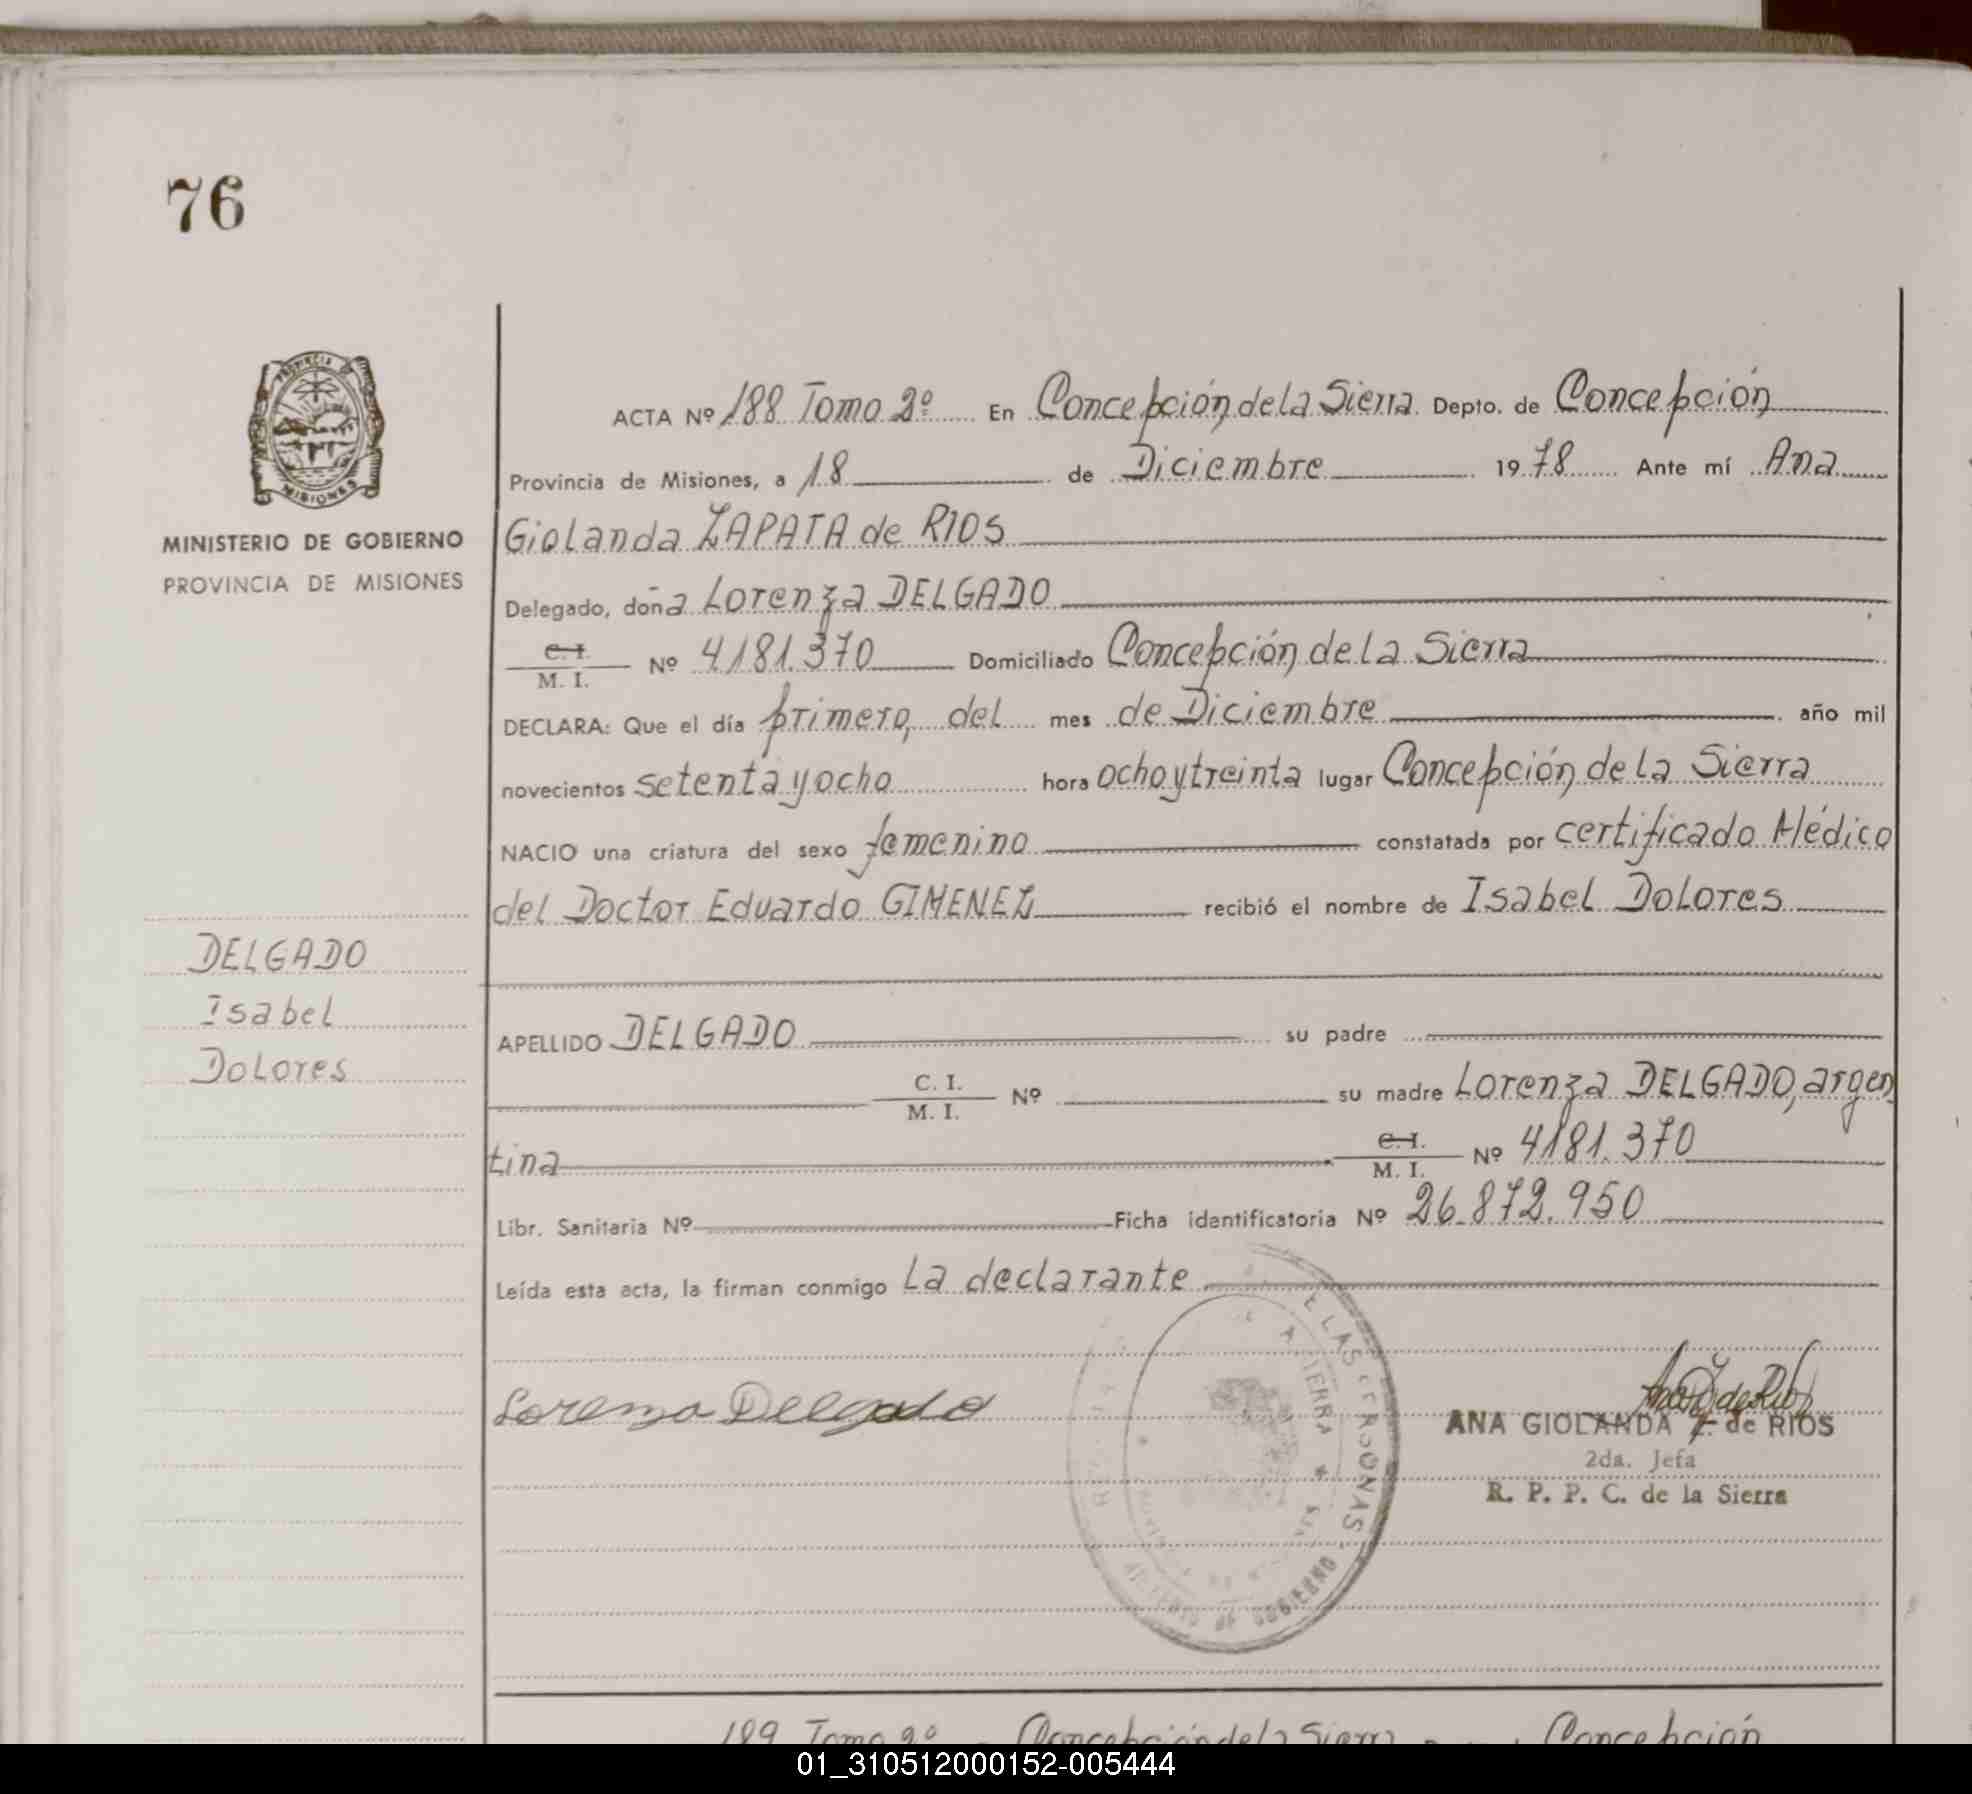 76
PROVINCIA DE
MISIONES
MINISTERIO DE GOBIERNO
PROVINCIA DE MISIONES
ACTA Nº 188 Tomo 2º En Concepción de la Sierra Depto. de Concepción
Provincia de Misiones, a 18 de Diciembre 1978 Ante mí Ana
Giolanda ZAPATA de RIOS
Delegado, doña Lorenza DELGADO
C. I.
M. I. Nº 4181.370 Domiciliado Concepción de la Sierra
DECLARA: Que el día primero, del mes de Diciembre año mil
novecientos setenta y ocho hora ocho y treinta lugar Concepción de la Sierra
NACIO una criatura del sexo femenino constatada por certificado Médico
del Doctor Eduardo GIMENEZ recibió el nombre de Isabel Dolores
DELGADO
Isabel
Dolores
APELLIDO DELGADO su padre
C. I.
M. I. Nº su madre Lorenza DELGADO, argen
tina C. I.
M. I. Nº 4181.370
Libr. Sanitaria Nº Ficha identificatoria Nº 26.872.950
Leída esta acta, la firman conmigo La declarante
Lorenza Delgado
LAS PERSONAS
SIERRA
DE GOBIERNO
Ana G Z de Rios
ANA GIOLANDA Z. de RIOS
2da. Jefa
R. P. P. C. de la Sierra
189 Tomo 2º Concepción de la Sierra Concepción
01_310512000152-005444